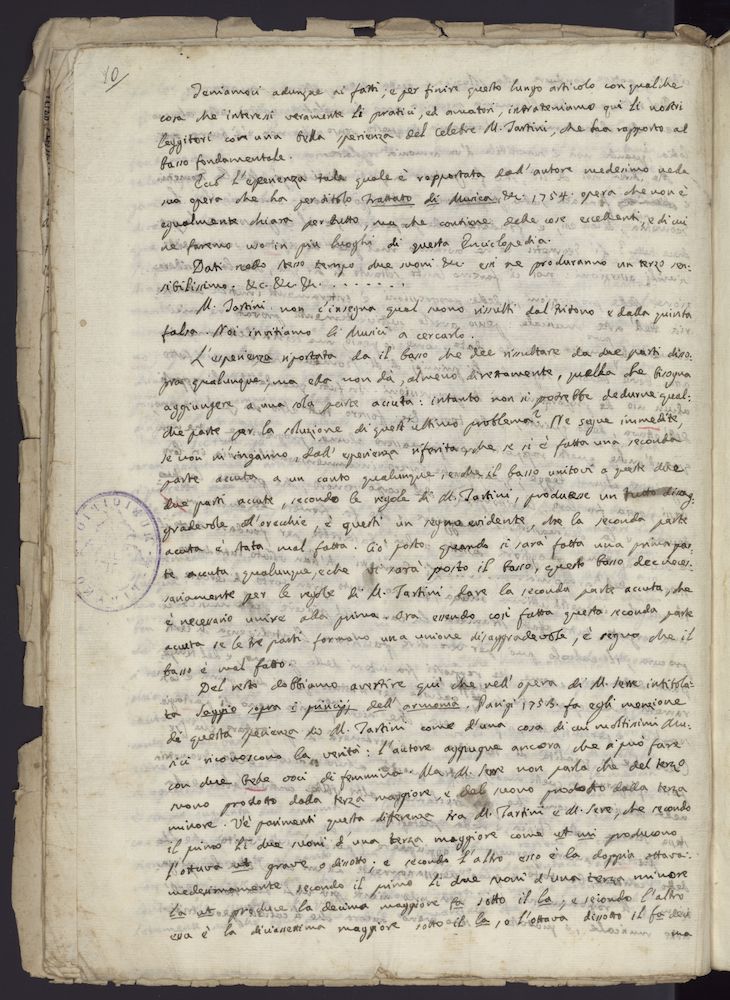 10
Teniamoci adunque ai fatti, e per finire questo lungo articolo con qualche
cosa che interessi veramente li pratici, ed amatori, intrateniamo qui li nostri
leggitori con una bella sperienza del celebre M. Tartini, che ha rapporto al
basso fondamentale.
Ecco l'esperienza tale quale è rapportata dall'autore medesimo nella
sua opera che ha per titolo trattato di Musica, &c. 1754. opera che non è
egualmente chiara per tutto, ma che contiene delle cose eccellenti, e di cui
ne faremo uso in più luoghi di questa Enciclopedia.
Dati nello stesso tempo due suoni &c. essi ne produranno un terzo sen-
sibilissimo. &c. &c. &c. . . . . . . .
M. Tartini non c'insegna qual suono rissulti dal tritono e dalla quinta
falsa. Noi invitiamo li Musici a cercarlo.
L'esperienza riportata da il basso che dee rissultare da due parti diso-
pra qualunque; ma ella non dà, almeno direttamente, quella che bisogna
aggiungere a una sola parte accuta: intanto non si potrebbe dedurne qual-
che parte per la soluzione di quest'ultimo problema? Ne segue immedite,
se non m'inganno, dall'esperienza riferita, che se si è fatta una seconda
parte accuta a un canto qualunque, e che il basso unitovi a queste due
due parti acute, secondo le regole di M. Tartini, producesse un tutto disag-
gradevole all'orecchie, è questi un segno evidente, che la seconda parte
acuta è stata mal fatta. Ciò posto quando si sarà fatta una prima par-
te accuta qualunque, e che si sarà posto il basso, questo basso dee neces-
sariamente per le regole di M. Tartini dare la seconda parte accuta, che
è necessario unire alla prima. Ora essendo così fatta questa seconda parte
acuta se le tre parti formano una unione disaggradevole, è segno che il
basso è mal fatto.
Del resto dobbiamo avertire qui che nell'opera di M. Serre intitola-
ta Saggio sopra i principj dell'armonia. Parigi 1753. fa egli menzione
di questa sperienza di M. Tartini come d'una cosa di cui moltissimi Mu-
sici riconoscono la verità: l'autore aggiugne ancora che si può fare
con due belle voci di femmina. Ma M. Serre non parla che del terzo
suono prodotto dalla terza maggiore, e del suono prodotto dalla terza
minore. V'è parimenti questa diferenza tra M. Tartini e M. Sere, che secondo
il primo li due suoni d'una terza maggiore come ut mi producono
l'ottava ut grave o dissotto; e secondo l'altro esso è la doppia ottava:
medesimamente secondo il primo li due suoni d'una terza minore
la ut produce la decima maggiore fa sotto il la, e secondo l'altro
essa è la diciassettima maggiore sotto il la, o l'ottava dissotto il fa deci
ma